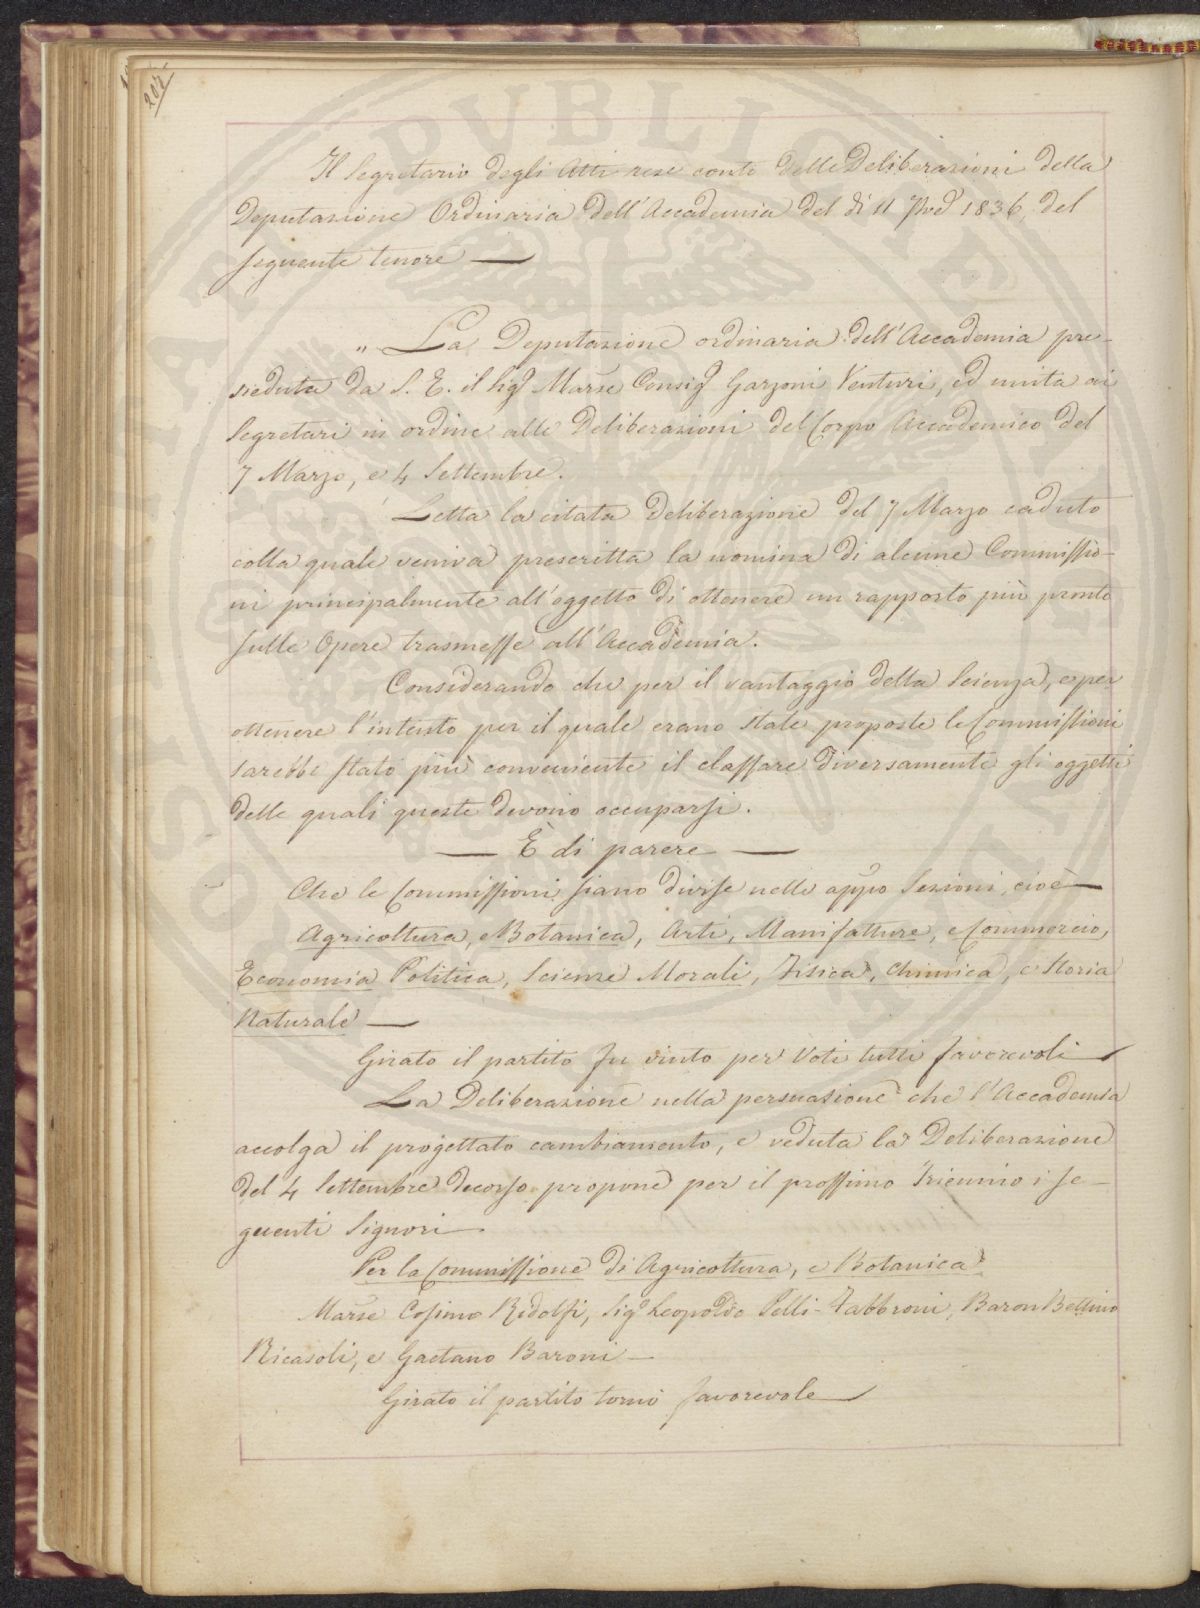 202
Il Segretario degli Atti rese conto delle Deliberazioni della
Deputazione Ordinaria dell'Accademia del dì 11 1836, del
seguente tenore —
„ La Deputazione ordinaria dell'Accademia pre-
sieduta da S. E. il Sig.r Marse Consig.r Garzoni Venturi, ed unita ai
Segretari in ordine alle Deliberazioni del Corpo Accademico del
7 Marzo, e 4 Settembre.
Letta la citata Deliberazione del 7 Marzo caduto
colla quale veniva prescritta la nomina di alcune Commissio-
ni principalmente all'oggetto di ottenere un rapporto più pronto
sulle Opere trasmesse all'Accademia.
Considerando che per il vantaggio della Scienza, e per
ottenere l'intento per il quale erano state proposte le Commissioni
sarebbe stato più conveniente il classare diversamente gli oggetti
delle quali queste devono occuparsi.
— È di parere —
Che le Commissioni siano divise nelle appo Sezioni, cioè —
Agricoltura, e Botanica, Arti, Manifatture, e Commercio,
Economia Politica, Scienze Morali, Fisica, Chimica, e Storia
Naturale —
Girato il partito fu vinto per Voti tutti favorevoli —
La Deliberazione nella persuasione che l'Accademia
accolga il progettato cambiamento, e veduta la Deliberazione
del 4 Settembre decorso propone per il prossimo Triennio i se-
guenti Signori —
Per la Commissione di Agricoltura, e Botanica
Marse Cosimo Ridolfi, Sig.r Leopoldo Pelli-Fabbroni, Baron Bettino
Ricasoli, e Gaetano Baroni —
Girato il partito tornò favorevole —
PVBLICAE